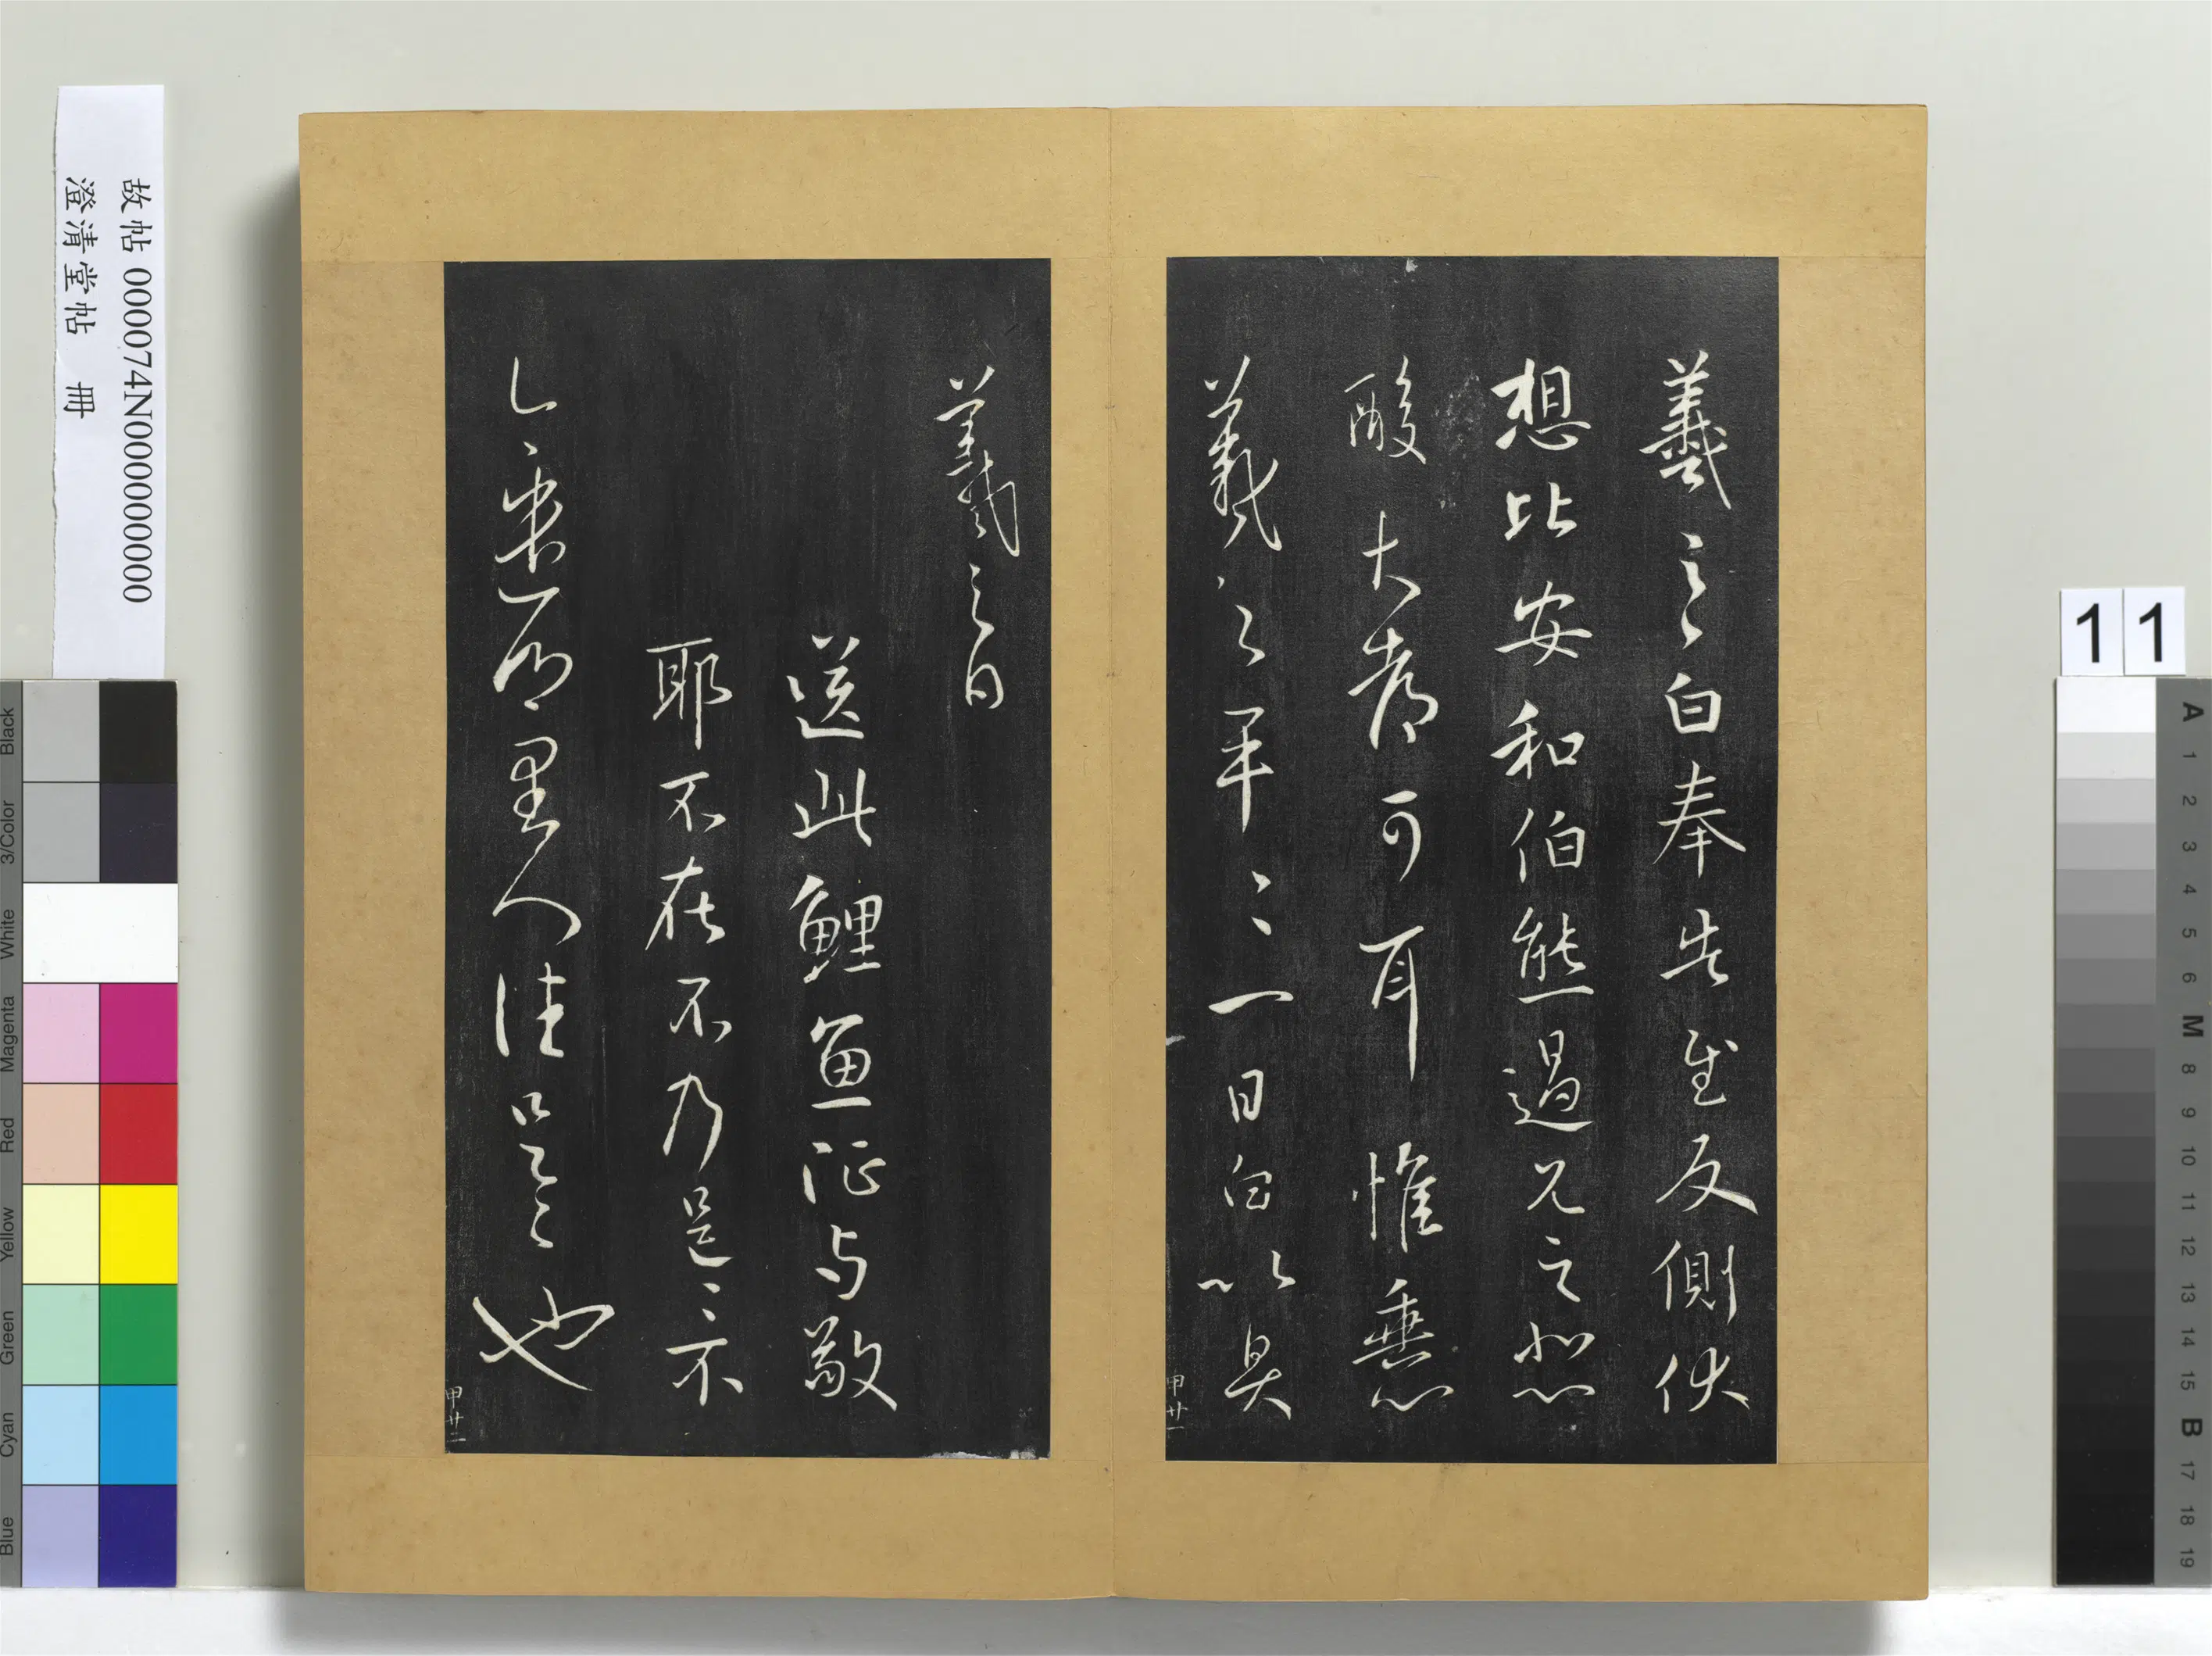 羲之白奉告慰反側伏
想比安和伯熊過見之悲
酸大都可耳惟
羲之 一日白 以具
甲廿一
羲之白
送此鯉魚征与敬
耶不在不乃是〻不
里人佳 也
甲廿二
故帖 000074N000000000
澄清堂帖 冊
11
Black
3/Color
White
Magenta
Red
Yellow
Green
Cyan
Blue
A
1
2
3
4
5
6
M
8
9
10
11
12
13
14
15
B
17
18
19